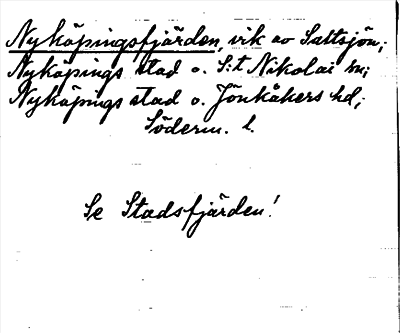 Nyköpingsfjärden, vik av Saltsjön;
Nyköpings stad o. S:t Nikolai sn;
Nyköpings stad o. Jönåkers hd;
Söderm. l.
Se Stadsfjärden!